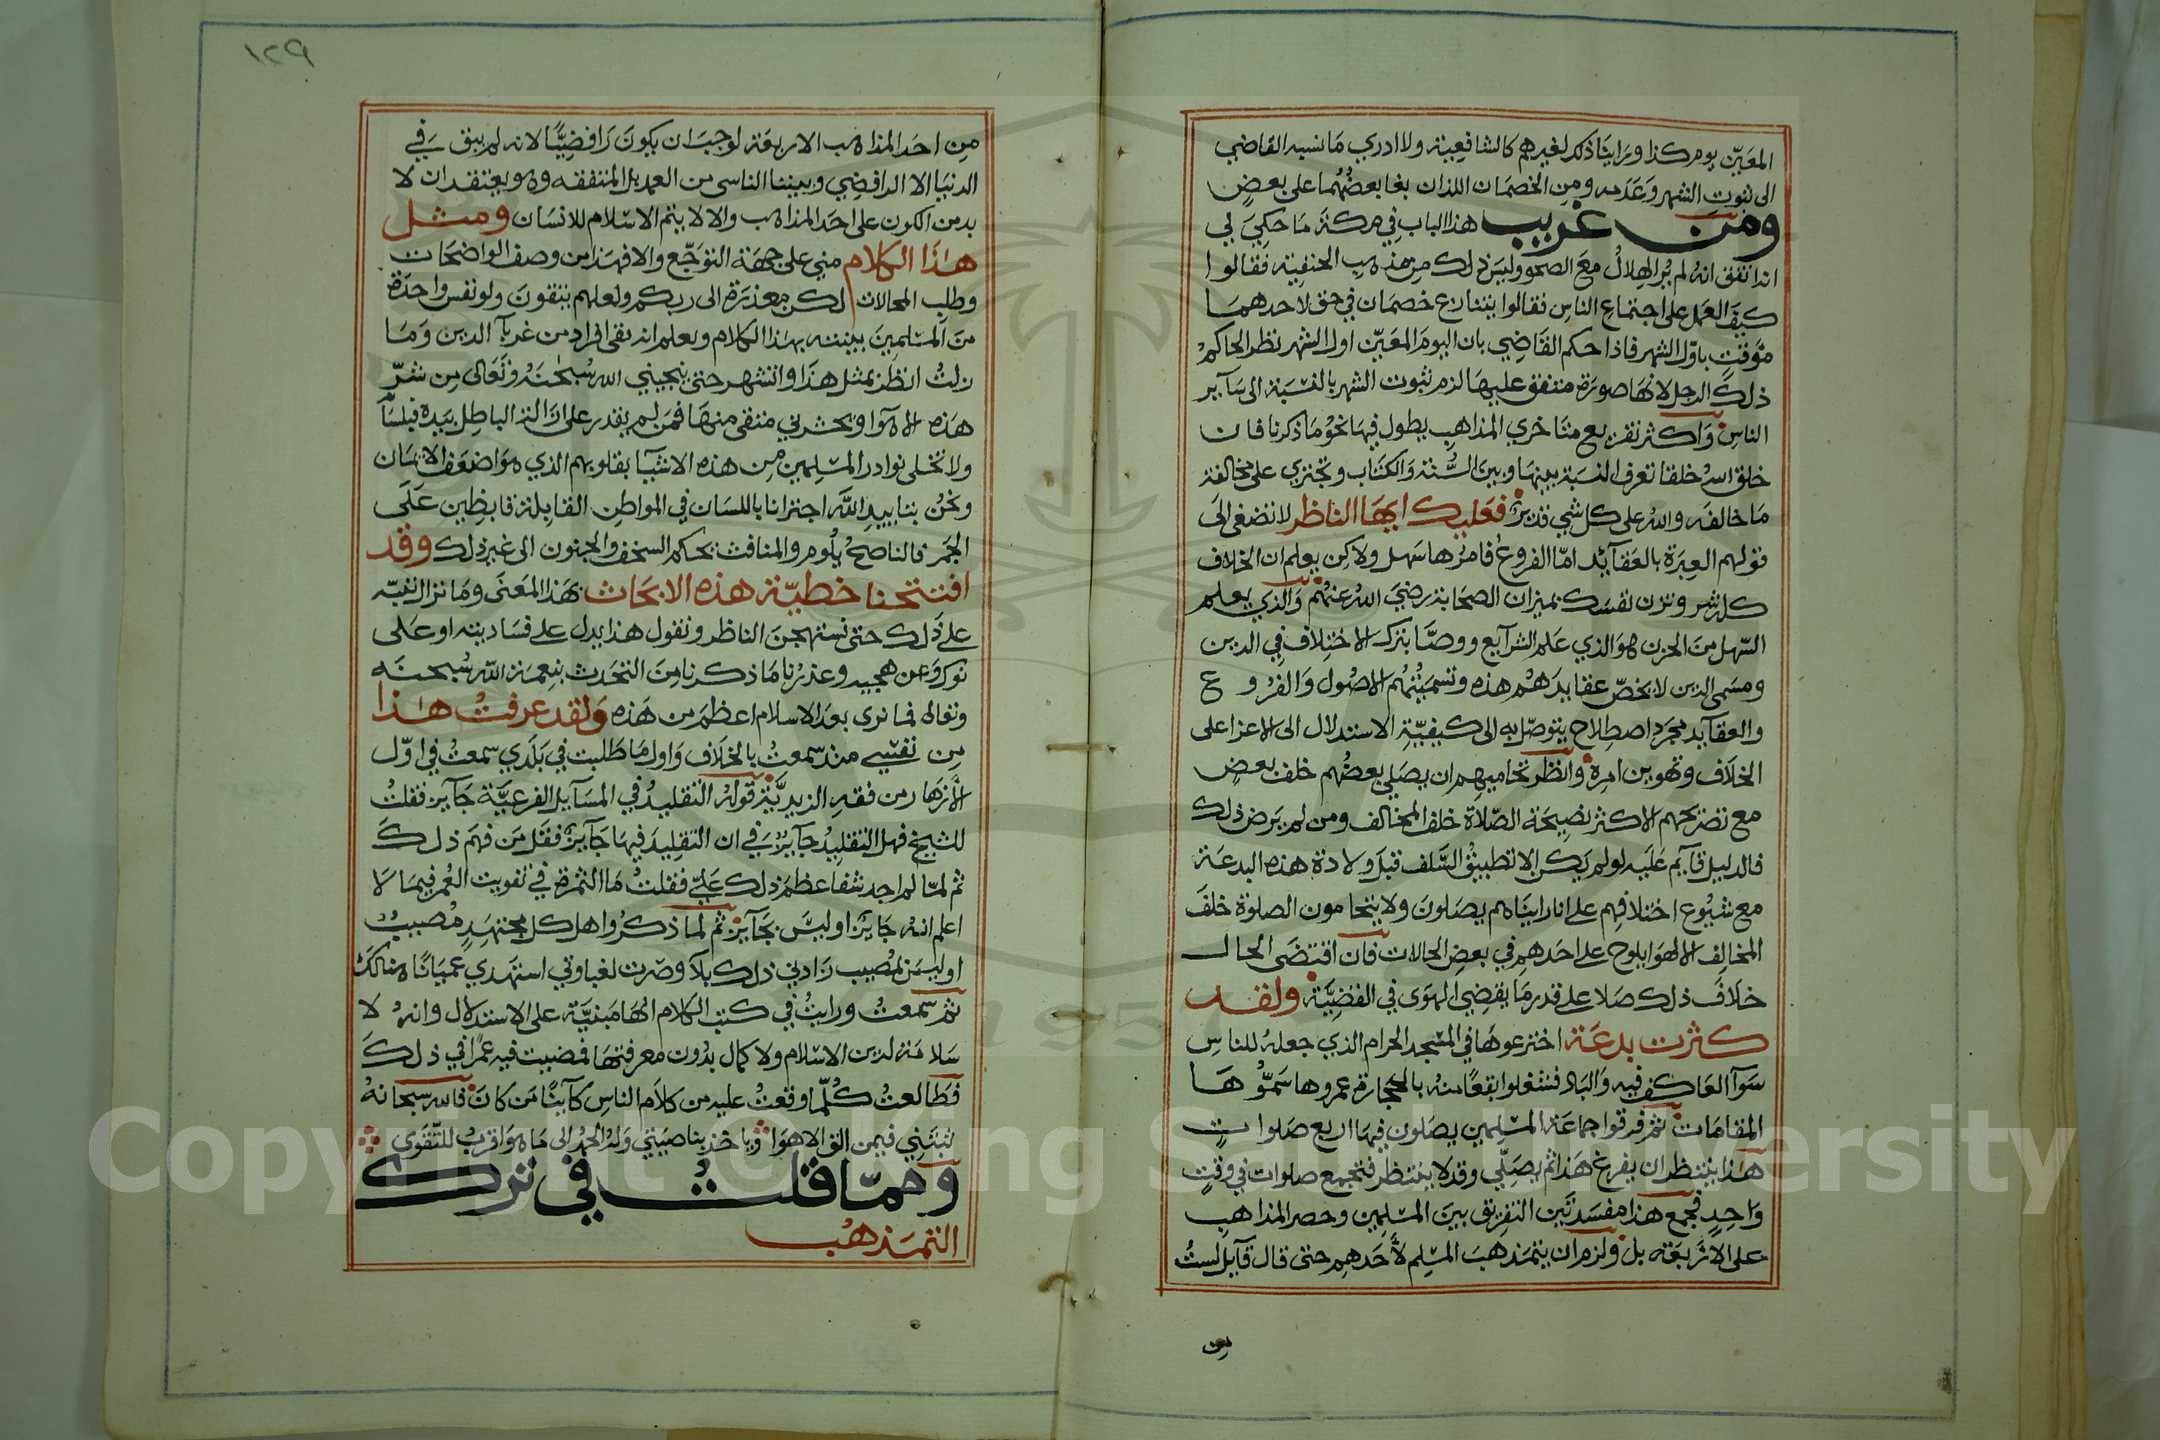 المعين يوم كذا ورايتا ذكر لغيرهم كالشافعية ولا ادري ما نسبه القاضي
الى ثبوت الشهر وعدمه ومن الخصمان اللذان بغا بعضهما على بعض
ومن غريب هذا الباب في مكة ما حكي لي
انه اتفق انه لم ير الهلال مع الصحو وليس ذلك من مذهب الحنفية فقالوا
كيف العمل على اجتماع الناس فقالوا يتنازع خصمان في حق لاحدهما
موقت باول الشهر فاذا حكم القاضي بان اليوم المعين اول الشهر نظر الحاكم
ذلك الرجل لانها صورة متفق عليها لزم ثبوت الشهر بالنسبة الى سآير
الناس واكثر تفريع متاخري المذاهب يطول فيها نحو ما ذكرنا فان
خلق الله خلقا تعرف النسبة بينها وبين السنة والكتاب وتجتري على مخالفة
ما خالفه والله على كل شي قدير فعليك ايها الناظر لا تصغى الى
قولهم العبرة بالعقآئد امّا الفروع فامرها سهل ولاكن يعلم ان الخلاف
كله شر وتزن نفسك بميزان الصحابة رضي الله عنهم والذي يعلم
السهل من الحزن هو الذي علم الشرآيع ووصّا بترك الاختلاف في الدين
ومسمى الدين لا يخصّ عقايدهم هذه وتسميتهم الاصول والفروع
والعقآيد مجرد اصطلاح يتوصّل به الى كيفيّة الاستدلال الى الاعزا على
الخلاف وتهوين امره وانظر تحاميهم ان يصلي بعضهم خلف بعض
مع تصريحهم الاكثر بصحة الصّلاة خلف المخالف ومن لم يرض ذلك
فالدليل قآيم عليه لو لم يكن الا تطبيق السّلف قبل ولادة هذه البدعة
مع شيوع اختلافهم على انا رايناهم يصلون ولا يتحامون الصلوة خلف
المخالف الا لهوا يلوح على احدهم في بعض الحالات فان اقتضى الحال
خلاف ذلك صلا على قدر ما يقضي الهوى في القضيّة ولقد
كثرت بدعة اخترعوها في المسجد الحرام الذي جعله للناس
سوآ العاكف فيه والباد فشغلوا بقعًا منه بالحجارة عمروها سمّوها
المقامات ثم فرقوا جماعة المسلمين يصلون فيها اربع صلوات
هذا ينتظر ان يفرغ هذا ثم يصلّي وقد لا ينتظر فتجمع صلوات في وقت
واحد فجمع هذا مفسدتين التفريق بين المسلمين وحصر المذاهب
على الاربعة بل ولزم ان يتمذهب المسلم لأحدهم حتى قال قآيل لست
من
١٢٩
من احد المذاهب الاربعة لوجب ان يكون رافضيًّا لانه لم يبق في
الدنيا الا الرافضي وبيننا الناسى من العمديل المتفقه وهو يعتقد ان لا
بد من الكون على احد المذاهب والا لا يتم الاسلام للانسان ومثل
هذا الكلام مني على جهة التوجّع والا فهذا من وصف الواضحات
وطلب المحالات لكن معذرة الى ربكم ولعلهم يتقون ولو نفس واحدة
من المسلمين بيننه بهذا الكلام ويعلم انه بقى افراد من غربآ الدين وما
زلت انظر بمثل هذا وانتشهر حتى ينجيني الله سبحنه وتعالى من شرّ
هذه الاهوآ ويحشرني متنقى منها فمن لم يقدر على ازالة الباطل بيده فبلسانه
ولا تخلى نوادر المسلمين من هذه الاشيآ بقلوبهم الذي هو اضعف الايمان
ونحن بتاييد الله اجتزانا باللسان في المواطن القابلة قابظين على
الجمر فالناصح يلوم والمنافث يحكم السخف والجنون الى غير ذلك وقد
افتتحنا خطبة هذه الابحاث بهذا المعنى وما نزال ننبّه
على ذلك حتى يستهجن الناظر ونقول هذا يدل على فساد بنته او على
نوكه وعن هجيه وعذرنا ما ذكرنا من التحدث بنعمة الله سبحنه
وتعالى فما نرى بعد الاسلام اعظم من هذه ولقد عرفت هذا
من نفسي منذ سمعت بالخلاف واول ما طلبت في بلدي سمعت في اوّل
الأزهار من فقه الزيديّة قوله التقليد في المسآيل الفرعيّة جآيز فقلت
للشيخ فهل التقليد جآيز في ان التقليد فيها جآيز فقل من فهم ذلك
ثم لمّا لم اجد شفا عظم ذلك عليّ فقلت ما الثمرة في تفويت العمر فيما لا
اعلم انه جايز او ليس بجآيز ثم لما ذكروا هل كل مجتهد مصيب
او ليس بمصيب زادني ذلك بلآ وصرت لغباوتي استهدي عميانًا هنالك
ثم سمعت ورايت في كتب الكلام انها مبنيّة على الاستدلال وانه لا
سلامة لدين الاسلام ولا كمال بدون معرفتها فمضيت فيه عمرًا في ذلك
فطالعت كلّما وقعت عليه من كلام الناس كآينًا من كان فالله سبحانه
يثبتني فيمن الق الاهوا وياخذ بناصيتي وله الحمد الى ما هو اقرب للتّقوى
وممّا قلت في ترك
التمذهب
Copyright © King Saud University
1957